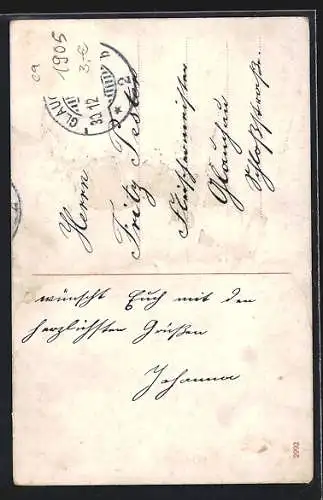 ca 1905
3,-€
GLAU
30.12
* 2 b
Herrn
Fritz Tester
Fleischermeister
Glauchau
Schloßstraße.
wünscht Euch mit den
herzlichsten Grüßen
Johanna
2992